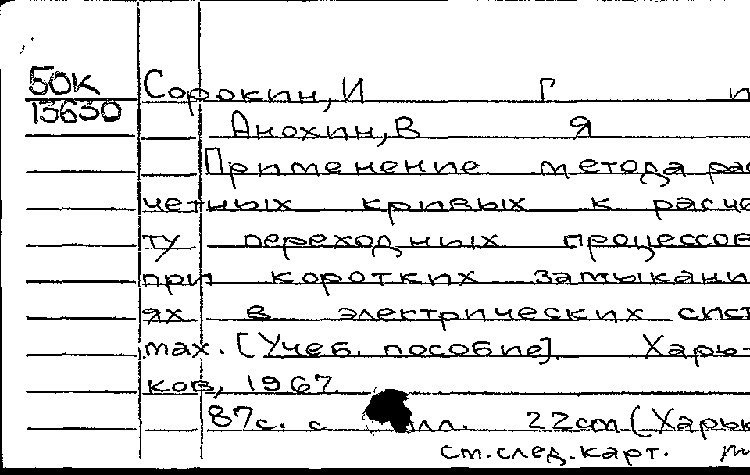 50К Сорокин, И Г п
13630 Анохин, В Я
Применение метода рас
четных кривых к расче
ту переходных процессов
при коротких замыкани
ях в электрических сист
мах. [Учеб. пособие]. Харь-
ков, 1967
87с. с илл. 22cm (Харьк
см.след.карт.